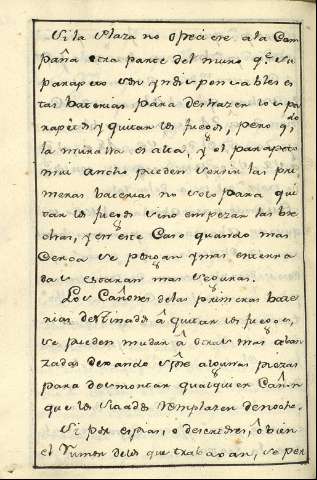 Si la Plaza no ofreciere ala Cam
paña otra parte del muro q.e su
parapeto son yndispensables es
tas baterias para deshazer los pa
rapetos y quitar los fuegos, pero q.do
la muralla es alta, y el parapeto
mui ancho pueden servir las pri
meras baterias no solo para qui
tar los fuegos sino empezar las bre
chas, y en este Caso quando mas
Cerca se pongan y mas enterra
das estaran mas seguras.
Los Cañones delas primeras bate
rias destinados â quitar los fuegos,
se pueden mudar â otras mas aban
zadas dexando siẽpre algunas piezas
para desmontar qualquier Cañon
que los sitiados remplazen de noche.
Si por espias, o desertores, ô bien
el rumor delos que trabaxan, se per